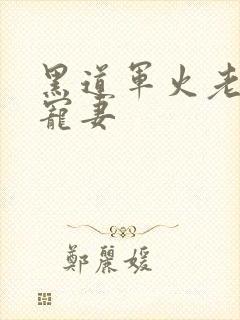 黑道軍火老
寵妻
鄭麗媛